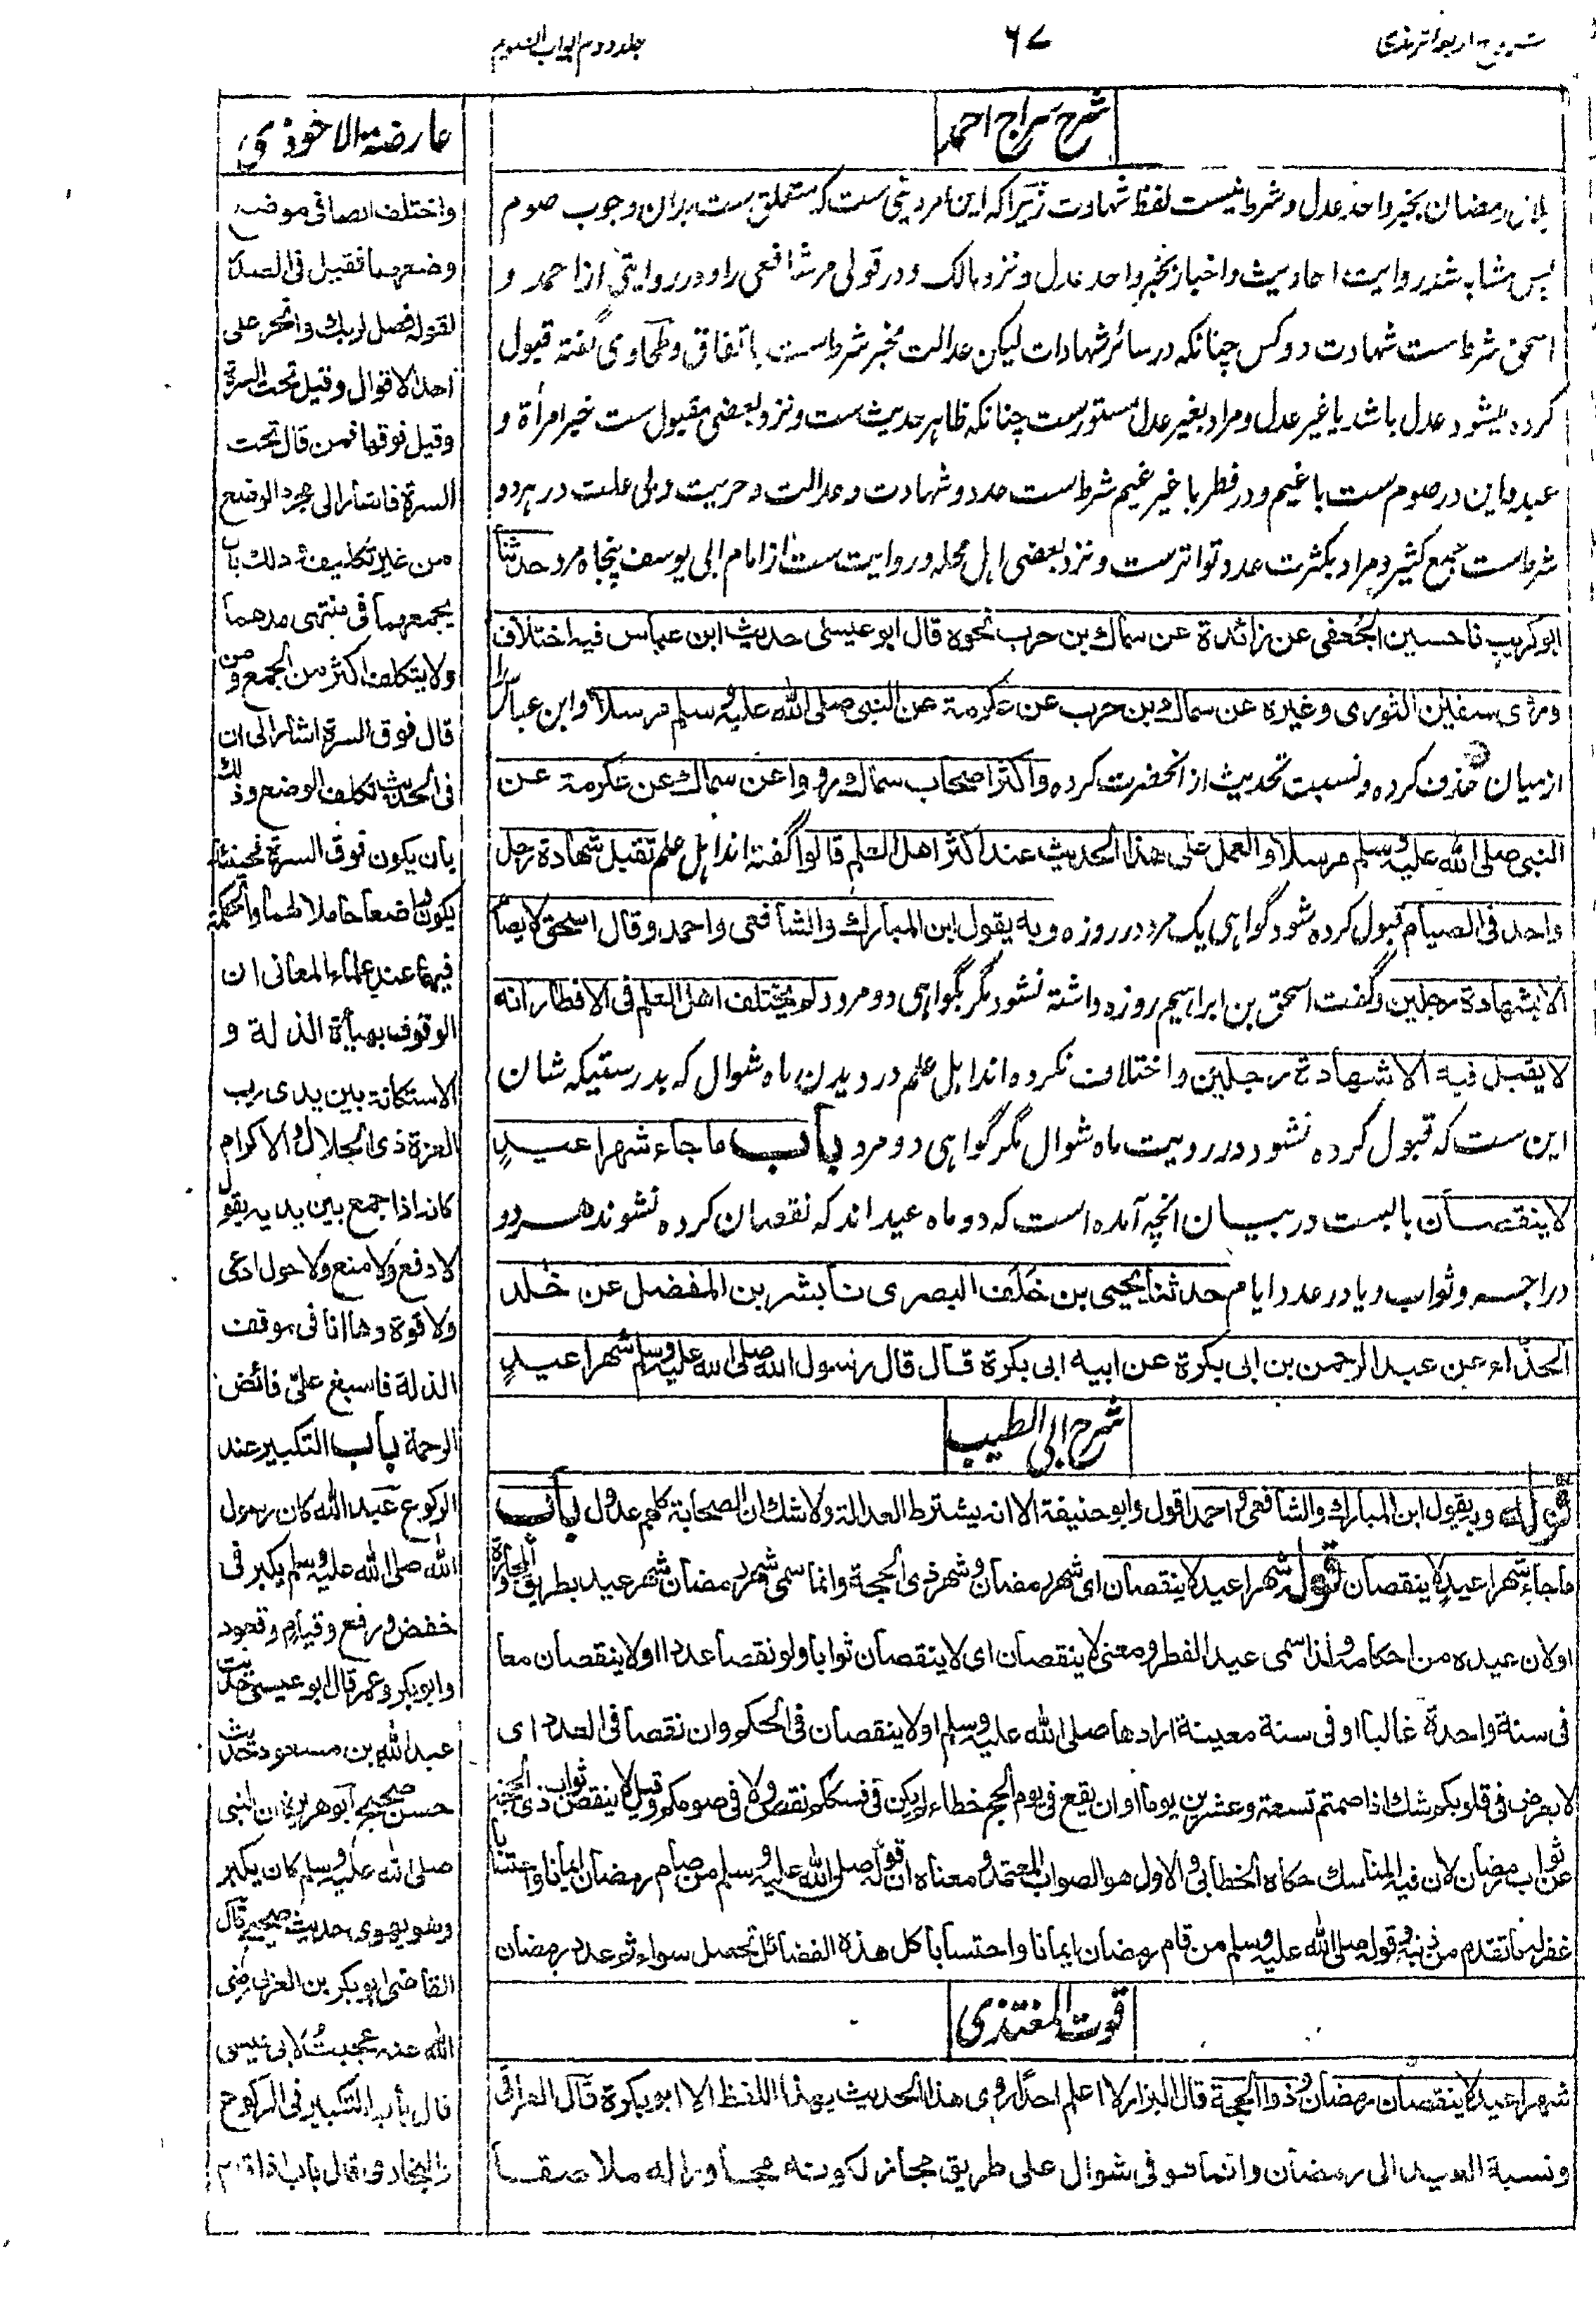 شروح اربعه ترمذی
۶۷
جلد دوم ابواب الصوم
شرح سراج احمد
رمضان بخبر واحد عدل و شرط نیست لفظ شهادت زیرا که این امر دینی ست که متعلق ست بران وجوب صوم
پس مشابه شد روایت احادیث و اخبار بخبر واحد عدل و نزد مالک و در قولی مر شافعی را و در روایتی از احمد و
اسحق شرط ست شهادت دو کس چنانکه در سائر شهادات لیکن عدالت مخبر شرط ست باتفاق و طحاوی گفته قبول
کرده میشود عدل باشد یا غیر عدل و مراد بغیر عدل مستورست چنانکه ظاهر حدیث ست و نزد بعضی مقبول ست خبر امرأة و
عبد و این در صوم ست با غیم و در فطر با غیر غیم شرط ست عدد و شهادت و عدالت و حریت ولی علت در هردو
شرط ست جمع کثیر و مراد بکثرت عدد تواترست و نزد بعضی اهل محله و روایت ست از امام ابی یوسف پنجاه مرد حدثنا
ابو کریب نا حسین الجعفی عن زائدة عن سماك بن حرب نحوه قال ابو عیسی حدیث ابن عباس فیه اختلاف
وروی سفین الثوری وغیره عن سماك بن حرب عن عکرمة عن النبی صلی الله علیه وسلم مرسلا و ابن عباس را
از میان حذف کرده و نسبت تحدیث از آنحضرت کرده واکثر اصحاب سماك رووا عن سماك عن عکرمة عن
النبی صلی الله علیه وسلم مرسلا والعمل علی هذا الحدیث عند اکثر اهل العلم قالوا گفته اند اهل علم تقبل شهادة رجل
واحد فی الصیام قبول کرده شود گواهی یک مرد در روزه وبه یقول ابن المبارك والشافعی واحمد وقال اسحق لا یصام
الا بشهادة رجلین و گفت اسحق بن ابراهیم روزه داشته نشود مگر بگواهی دو مرد ولم یختلف اهل العلم فی الافطار انه
لا یقبل فیه الا شهادة رجلین و اختلاف نکرده اند اهل علم در دیدن ماه شوال که بدرستیکه شان
این ست که قبول کرده نشود در رویت ماه شوال مگر گواهی دو مرد باب ما جاء شهرا عید
لا ینقصان بابست در بیان آنچه آمده است که دو ماه عید اند که نقصان کرده نشوند هردو
در اجر و ثواب و یا در عدد ایام حدثنا یحیی بن خلف البصری نا بشر بن المفضل عن خلد
الحذاء عن عبد الرحمن بن ابی بکرة عن ابیه ابی بکرة قال قال رسول الله صلی الله علیه وسلم شهرا عید
شرح ابی الطیب
قوله وبه یقول ابن المبارك والشافعی واحمد اقول وابو حنیفة الا انه یشترط العدالة ولا شك ان الصحابة کلهم عدول باب
ما جاء شهرا عید لا ینقصان قوله شهرا عید لا ینقصان ای شهر رمضان وشهر ذی الحجة وانما سمی شهر رمضان شهر عید بطریق المجاورة
او لان عیده من احکامه ولذا سمی عید الفطر ومعنی لا ینقصان ای لا ینقصان ثوابا ولو نقصا عددا او لا ینقصان معا
فی سنة واحدة غالبا او فی سنة معینة ارادها صلی الله علیه وسلم او لا ینقصان فی الحکم وان نقصا فی العدد ای
لا یعرض فی قلوبکم شك اذا صمتم تسعة وعشرین یوما او ان یقع فی یوم الحج خطاء لم یکن فی نسککم نقص ولا فی صومکم وقیل لا ینقص ثواب ذی الحجة
عن ثواب رمضان لان فیه المناسك حکاه الخطابی والاول هو الصواب المعتمد ومعناه ان قوله صلی الله علیه وسلم من صام رمضان ایمانا واحتسابا
غفر له ما تقدم من ذنبه وقوله صلی الله علیه وسلم من قام رمضان ایمانا واحتسابا کل هذه الفضائل تحصل سواء تم عدد رمضان
قوت المغتذی
شهرا عید لا ینقصان رمضان وذو الحجة قال البزار لا اعلم احدا روی هذا الحدیث بهذا اللفظ الا ابو بکرة قال العراقی
ونسبة العید الی رمضان وانما هو فی شوال علی طریق مجاز لکونه مجاورا له ملاصقا
عارضة الاحوذی
واختلف ایضا فی موضع
وضعهما فقیل فی الصدر
لقوله فصل لربك وانحر علی
احد الاقوال وقیل تحت السرة
وقیل فوقها فمن قال تحت
السرة فاشار الی مجرد الوضع
من غیر تکلیف وذلك بان
یجمعهما فی منتهی مدهما
ولا یتکلف اکثر من الجمع ومن
قال فوق السرة اشار الی ان
فی الحدیث تکلف الوضع وذلك
بان یکون فوق السرة فحینئذ
یکون واضعا حاملا لهما والحکمة
فیهما عند علماء المعانی ان
الوقوف بهیأة الذلة و
الاستکانة بین یدی رب
العزة ذی الجلال والاکرام
کانه اذا جمع بین یدیه یقول
لا دفع ولا منع ولا حول ادعی
ولا قوة وها انا فی موقف
الذلة فاسبغ علی فائض
الرحمة باب التکبیر عند
الرکوع عبد الله کان رسول
الله صلی الله علیه وسلم یکبر فی
خفض ورفع وقیام وقعود
وابو بکر وعمر قال ابو عیسی حدیث
عبد الله بن مسعود حدیث
حسن صحیح ابو هریرة ان النبی
صلی الله علیه وسلم کان یکبر
وهو یهوی حدیث صحیح قال
القاضی ابو بکر بن العربی رضی
الله عنه عجبت لابی عیسی
قال باب التکبیر فی الرکوع
والبخاری قال باب اذا قام